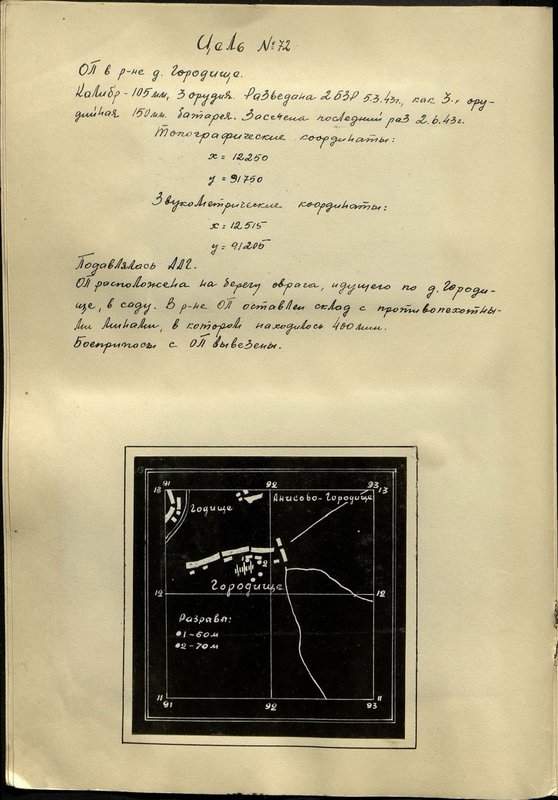 Цель №72
ОП в р-не д. Городище.
Калибр - 105 мм, 3 орудия. Разведана 2 БЗР 5.3.43г., как 3-х ору-
дийная 150 мм. батарея. Засечена последний раз 2.6.43г.
Топографические координаты:
x = 12250
y = 91750
Звукометрические координаты:
x = 12515
y = 91285
Подавлялась АДГ.
ОП расположена на берегу оврага, идущего по д. Городи-
ще, в саду. В р-не ОП оставлен склад с противопехотны-
ми минами, в котором находилось 400 мин.
Боеприпасы с ОП вывезены.
13 91 92 93 13
Годище
Анисово-Городище
2
Городище
12 12
Разрывы:
1 - 60 м
2 - 70 м
11 91 92 93 11